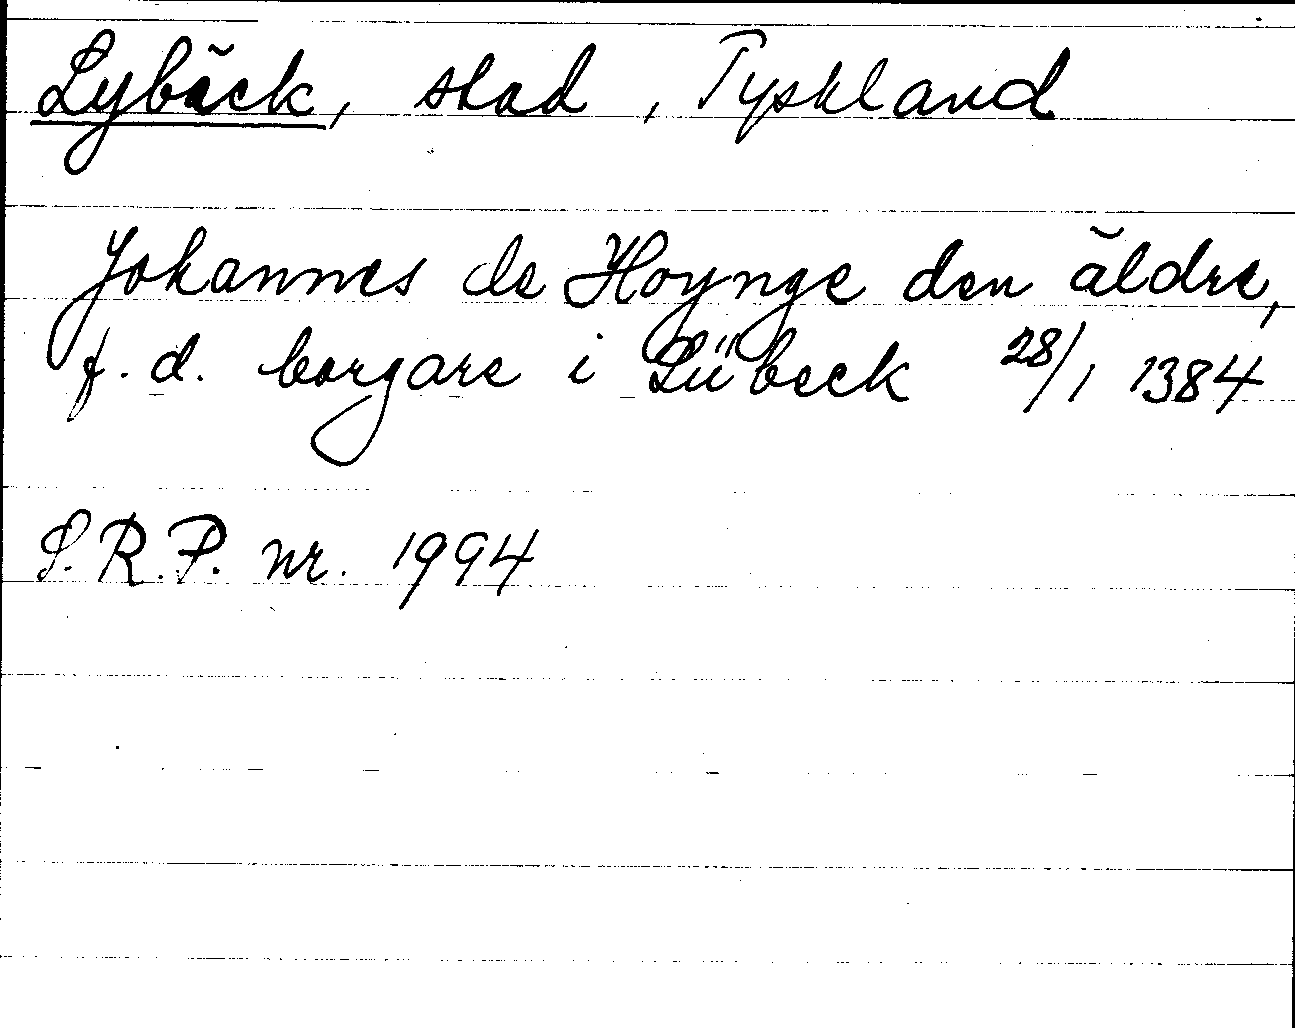 Lybäck, stad, Tyskland
Johannes de Hoynge den äldre,
f. d. borgare i Lübeck 28/1 1384
S.R.P. nr. 1994